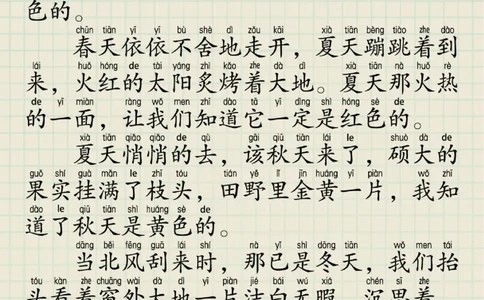 色的。
chūn tiān yī yī bù shě dì zǒu kāi xià tiān bèng tiào zhe dào
春天依依不舍地走开，夏天蹦跳着到
lái huǒ hóng de tài yáng zhì kǎo zhe dà dì xià tiān nà huǒ rè
来，火红的太阳炙烤着大地。夏天那火热
de yī miàn ràng wǒ men zhī dào tā yī dìng shì hóng sè de
的一面，让我们知道它一定是红色的。
xià tiān qiāo qiāo de qù gāi qiū tiān lái le shuò dà de
夏天悄悄的去，该秋天来了，硕大的
guǒ shí guà mǎn le zhī tóu tián yě lǐ jīn huáng yī piàn wǒ zhī
果实挂满了枝头，田野里金黄一片，我知
dào le qiū tiān shì huáng sè de
道了秋天是黄色的。
dāng běi fēng guā lái shí nà yǐ shì dōng tiān wǒ men tái
当北风刮来时，那已是冬天，我们抬
tóu kàn zhe chuāng wài dà dì yī piàn jié bái wú xiá chén sī zhe
头看着窗外大地一片洁白无，沉思着